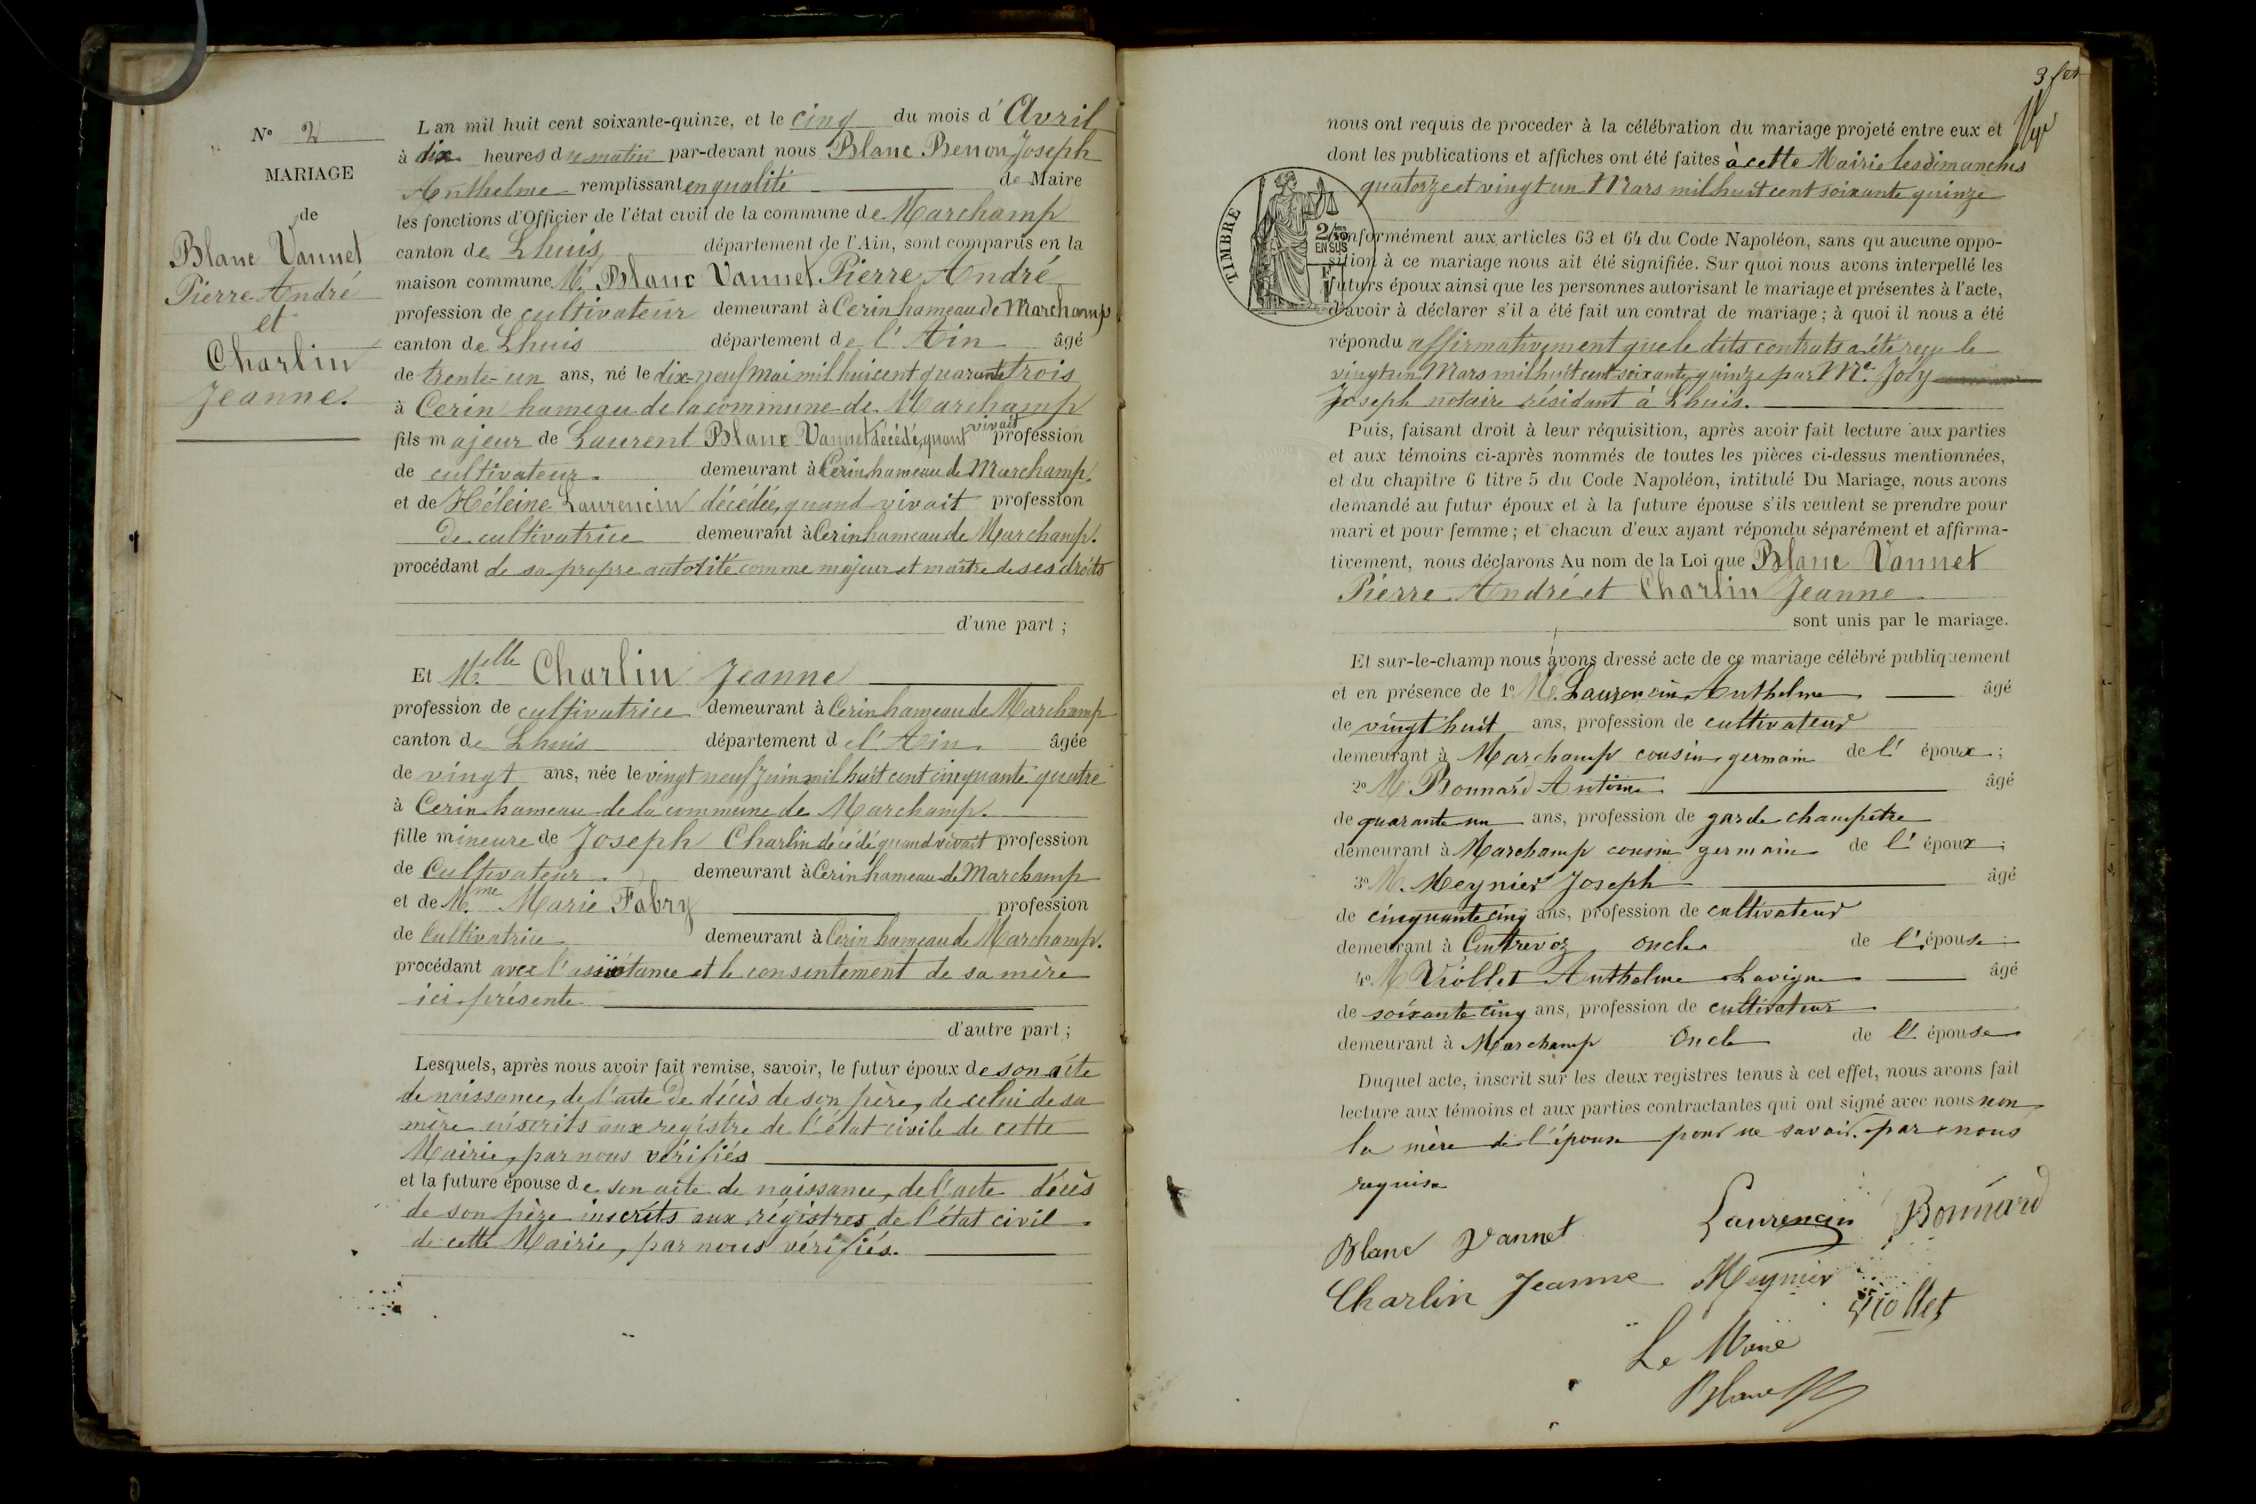 N° 2
MARIAGE
de
Blanc Vannet
Pierre André
et
Charlin
Jeanne.
L an mil huit cent soixante-quinze, et le cinq du mois d'Avril
à dix heures du matin par-devant nous Blanc Benon Joseph
Anthelme remplissant en qualité de Maire
les fonctions d'Officier de l'état civil de la commune de Marchamp
canton de Lhuis département de l'Ain, sont comparus en la
maison commune Mr Blanc Vannet Pierre André
profession de cultivateur demeurant à Cerin hameau de Marchamp
canton de Lhuis département de l'Ain âgé
de trente-un ans, né le dix-neuf mai mil huicent quarante trois
à Cerin hameau de la commune de Marchamp
fils majeur de Laurent Blanc Vannet décédé, quant vivait profession
de cultivateur. demeurant à Cerin hameau de Marchamp.
et de Héleine Laurencin décédée, quand vivait profession
de cultivatrice demeurant à Cerin hameau de Marchamp.
procédant de sa propre autotité comme majeur et maître de ses droits
d'une part ;
Et Melle Charlin Jeanne
profession de cultivatrice demeurant à Cerin hameau de Marchamp
canton de Lhuis département de l'Ain. âgée
de vingt ans, née le vingt neuf Juin mil huit cent cinquante quatre
à Cerin hameau de la commune de Marchamp.
fille mineure de Joseph Charlin décédé quand vivait profession
de Cultivateur. demeurant à Cerin hameau de Marchamp
et de Mme Marie Fabry profession
de Cultivatrice demeurant à Cerin hameau de Marchamp.
procédant avec l'assistance et le consentement de sa mère
ici présente
d'autre part ;
Lesquels, après nous avoir fait remise, savoir, le futur époux de son acte
de naissance, de l'acte de décès de son père, de celui de sa
mère inscrits aux registre de l'état civile de cette
Mairie, par nous vérifiés
et la future épouse de son acte de naissance, de l'acte décès
de son père inscrits aux régistres de l'état civil
de cette Mairie, par nous vérifiés.
3
nous ont requis de proceder à la célébration du mariage projeté entre eux et
dont les publications et affiches ont été faites à cette Mairie les dimanches
quatorze et vingt un Mars mil huit cent soixante quinze
TIMBRE
2/10es
EN SUS
Conformément aux articles 63 et 64 du Code Napoléon, sans qu aucune oppo-
sition à ce mariage nous ait été signifiée. Sur quoi nous avons interpellé les
futurs époux ainsi que les personnes autorisant le mariage et présentes à l'acte,
d'avoir à déclarer s'il a été fait un contrat de mariage ; à quoi il nous a été
répondu affirmativement que le dits contrats a été reçu le
vingt un Mars mil huit cent soixante quinze par Me. Joly
Joseph notaire résidant à Lhuis.
Puis, faisant droit à leur réquisition, après avoir fait lecture aux parties
et aux témoins ci-après nommés de toutes les pièces ci-dessus mentionnées,
et du chapitre 6 titre 5 du Code Napoléon, intitulé Du Mariage, nous avons
demandé au futur époux et à la future épouse s'ils veulent se prendre pour
mari et pour femme ; et chacun d'eux ayant répondu séparément et affirma-
tivement, nous déclarons Au nom de la Loi que Blanc Vannet
Pierre André et Charlin Jeanne
sont unis par le mariage.
Et sur-le-champ nous avons dressé acte de ce mariage célébré publiquement
et en présence de 1° M. Laurencin Anthelme âgé
de vingt huit ans, profession de cultivateur
demeurant à Marchamp cousin germain de l' époux ;
2° M Bonnard Antoine âgé
de quarante un ans, profession de garde champêtre
demeurant à Marchamp cousin germain de l' époux ;
3° M. Meynier Joseph âgé
de cinquante cinq ans, profession de cultivateur
demeurant à Contrevoz oncle de l' épouse
4° M Viollet Anthelme Lavigne âgé
de soixante cinq ans, profession de cultivateur
demeurant à Marchamp Oncle de l' épouse
Duquel acte, inscrit sur les deux registres tenus à cet effet, nous avons fait
lecture aux témoins et aux parties contractantes qui ont signé avec nous non
la mère de l'épouse pour ne savoir par nous
requise
Blanc Vannet Laurencin Bonnard
Charlin Jeanne Meynier Viollet
Le Maire
Blanc